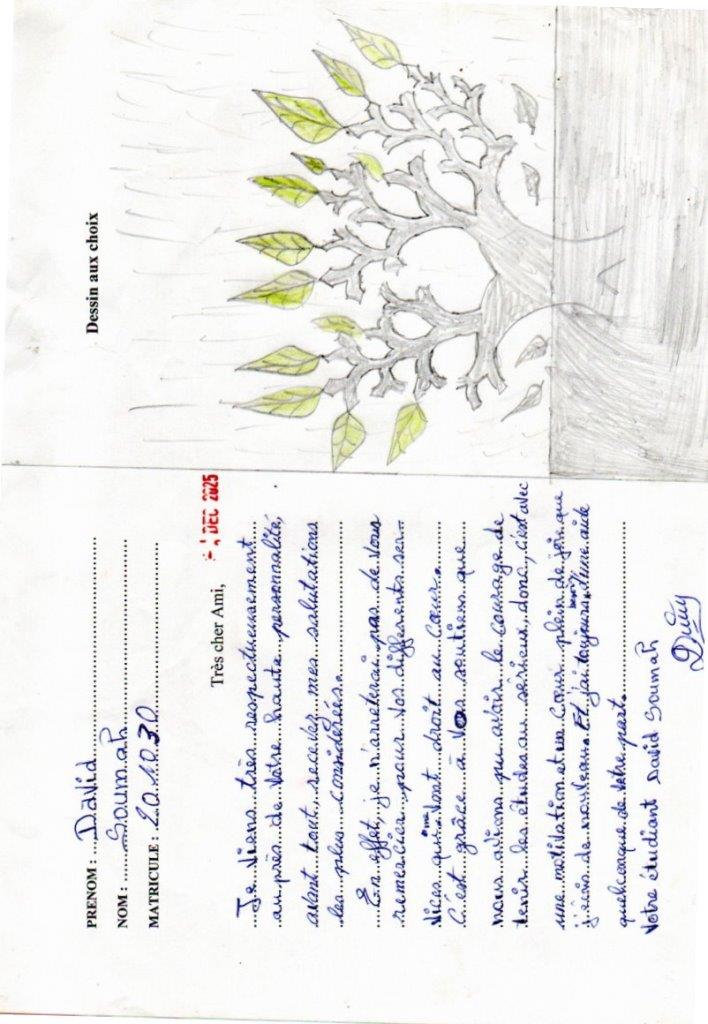 PRENOM : David
NOM : Soumah
MATRICULE : 20.10.30
- 1 DEC 2025
Très cher Ami,
Je viens très respectueusement
auprès de votre haute personnalité,
avant tout, recevez mes salutations
les plus considérées.
En effet, je n'arreterai pas de vous
remercier pour vos differents ser-
vices qui me vont droit au cœur.
C'est grâce à vos soutiens que
nous avions pu avoir le courage de
tenir les études au sérieux, donc, c'est avec
une motivation et un cœur plein de joie que
j'écris de nouveau. Et j'ai toujours une aide
quelconque de votre part.
Votre étudiant David Soumah
Dessin aux choix